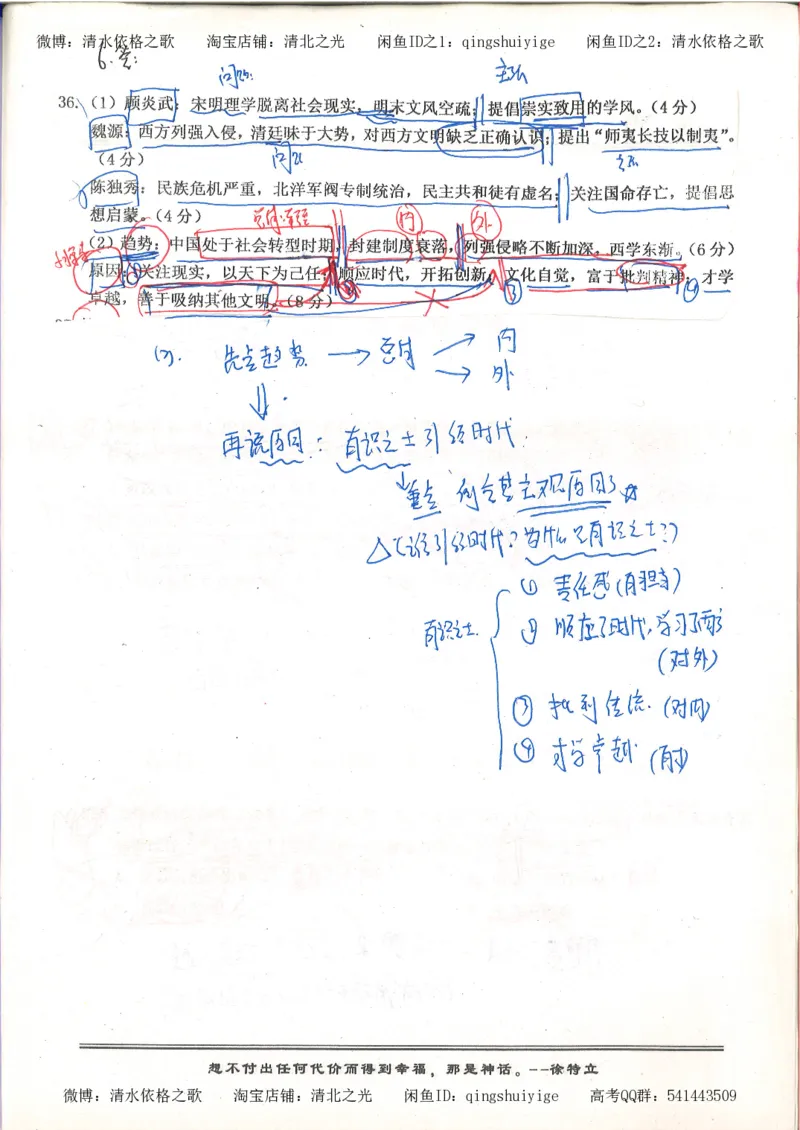 微博：清水依格之歌 淘宝店铺：清北之光 闲鱼ID之1：qingshuiyige 闲鱼ID之2：清水依格之歌
6.答：
问题： 主张
36.（1）顾炎武：宋明理学脱离社会现实，明末文风空疏；提倡崇实致用的学风。（4分）
魏源：西方列强入侵，清廷昧于大势，对西方文明缺乏正确认识；提出“师夷长技以制夷”。
（4分） 问题 主张
陈独秀：民族危机严重，北洋军阀专制统治，民主共和徒有虚名；关注国命存亡，提倡思
想启蒙。（4分） 内 外
（2）趋势：中国处于社会转型时期，封建制度衰落，列强侵略不断加深，西学东渐。（6分）
原因：关注现实，以天下为己任；顺应时代，开拓创新；文化自觉，富于批判精神；才学
卓越，善于吸纳其他文明。（8分）
(2). 先点趋势 → 总体 → 内
→ 外
再说原因：有识之士引领时代.
重点 何况其主观原因
△(谁引领时代？为什么是有识之士？)
① 责任感(有担当)
有识之士. ② 顺应了时代，学习了西方
(对外)
③ 批判传统. (对内)
④ 才学卓越 (有才)
想不付出任何代价而得到幸福，那是神话。--徐特立
微博：清水依格之歌 淘宝店铺：清北之光 闲鱼ID：qingshuiyige 高考QQ群：541443509